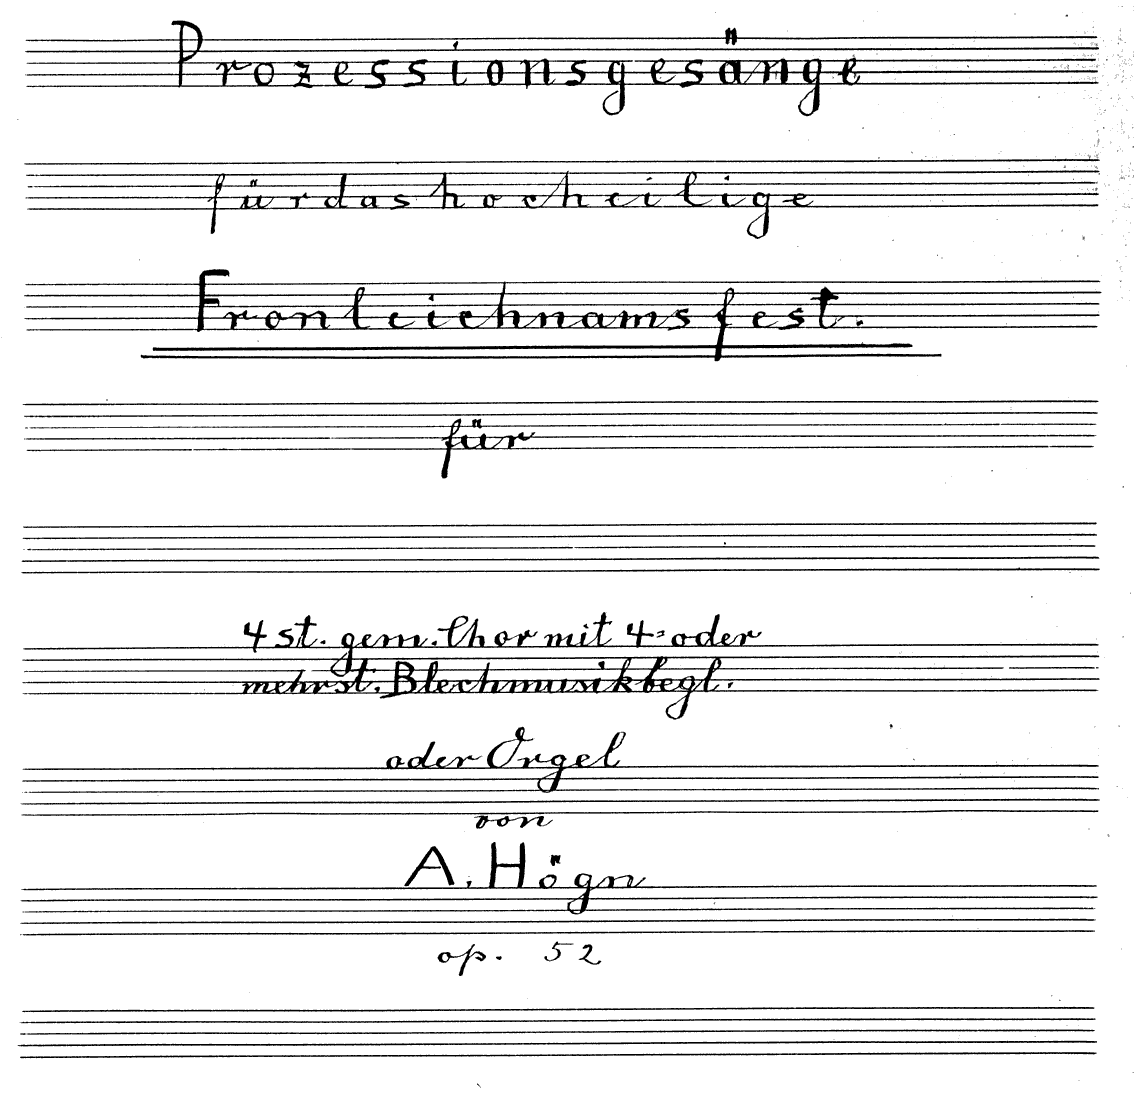 Prozessionsgesänge
für das hochheilige
Fronleichnamsfest.
für
4 st. gem. Chor mit 4= oder
mehrst. Blechmusikbegl.
oder Orgel
von
A. Högn
op. 52